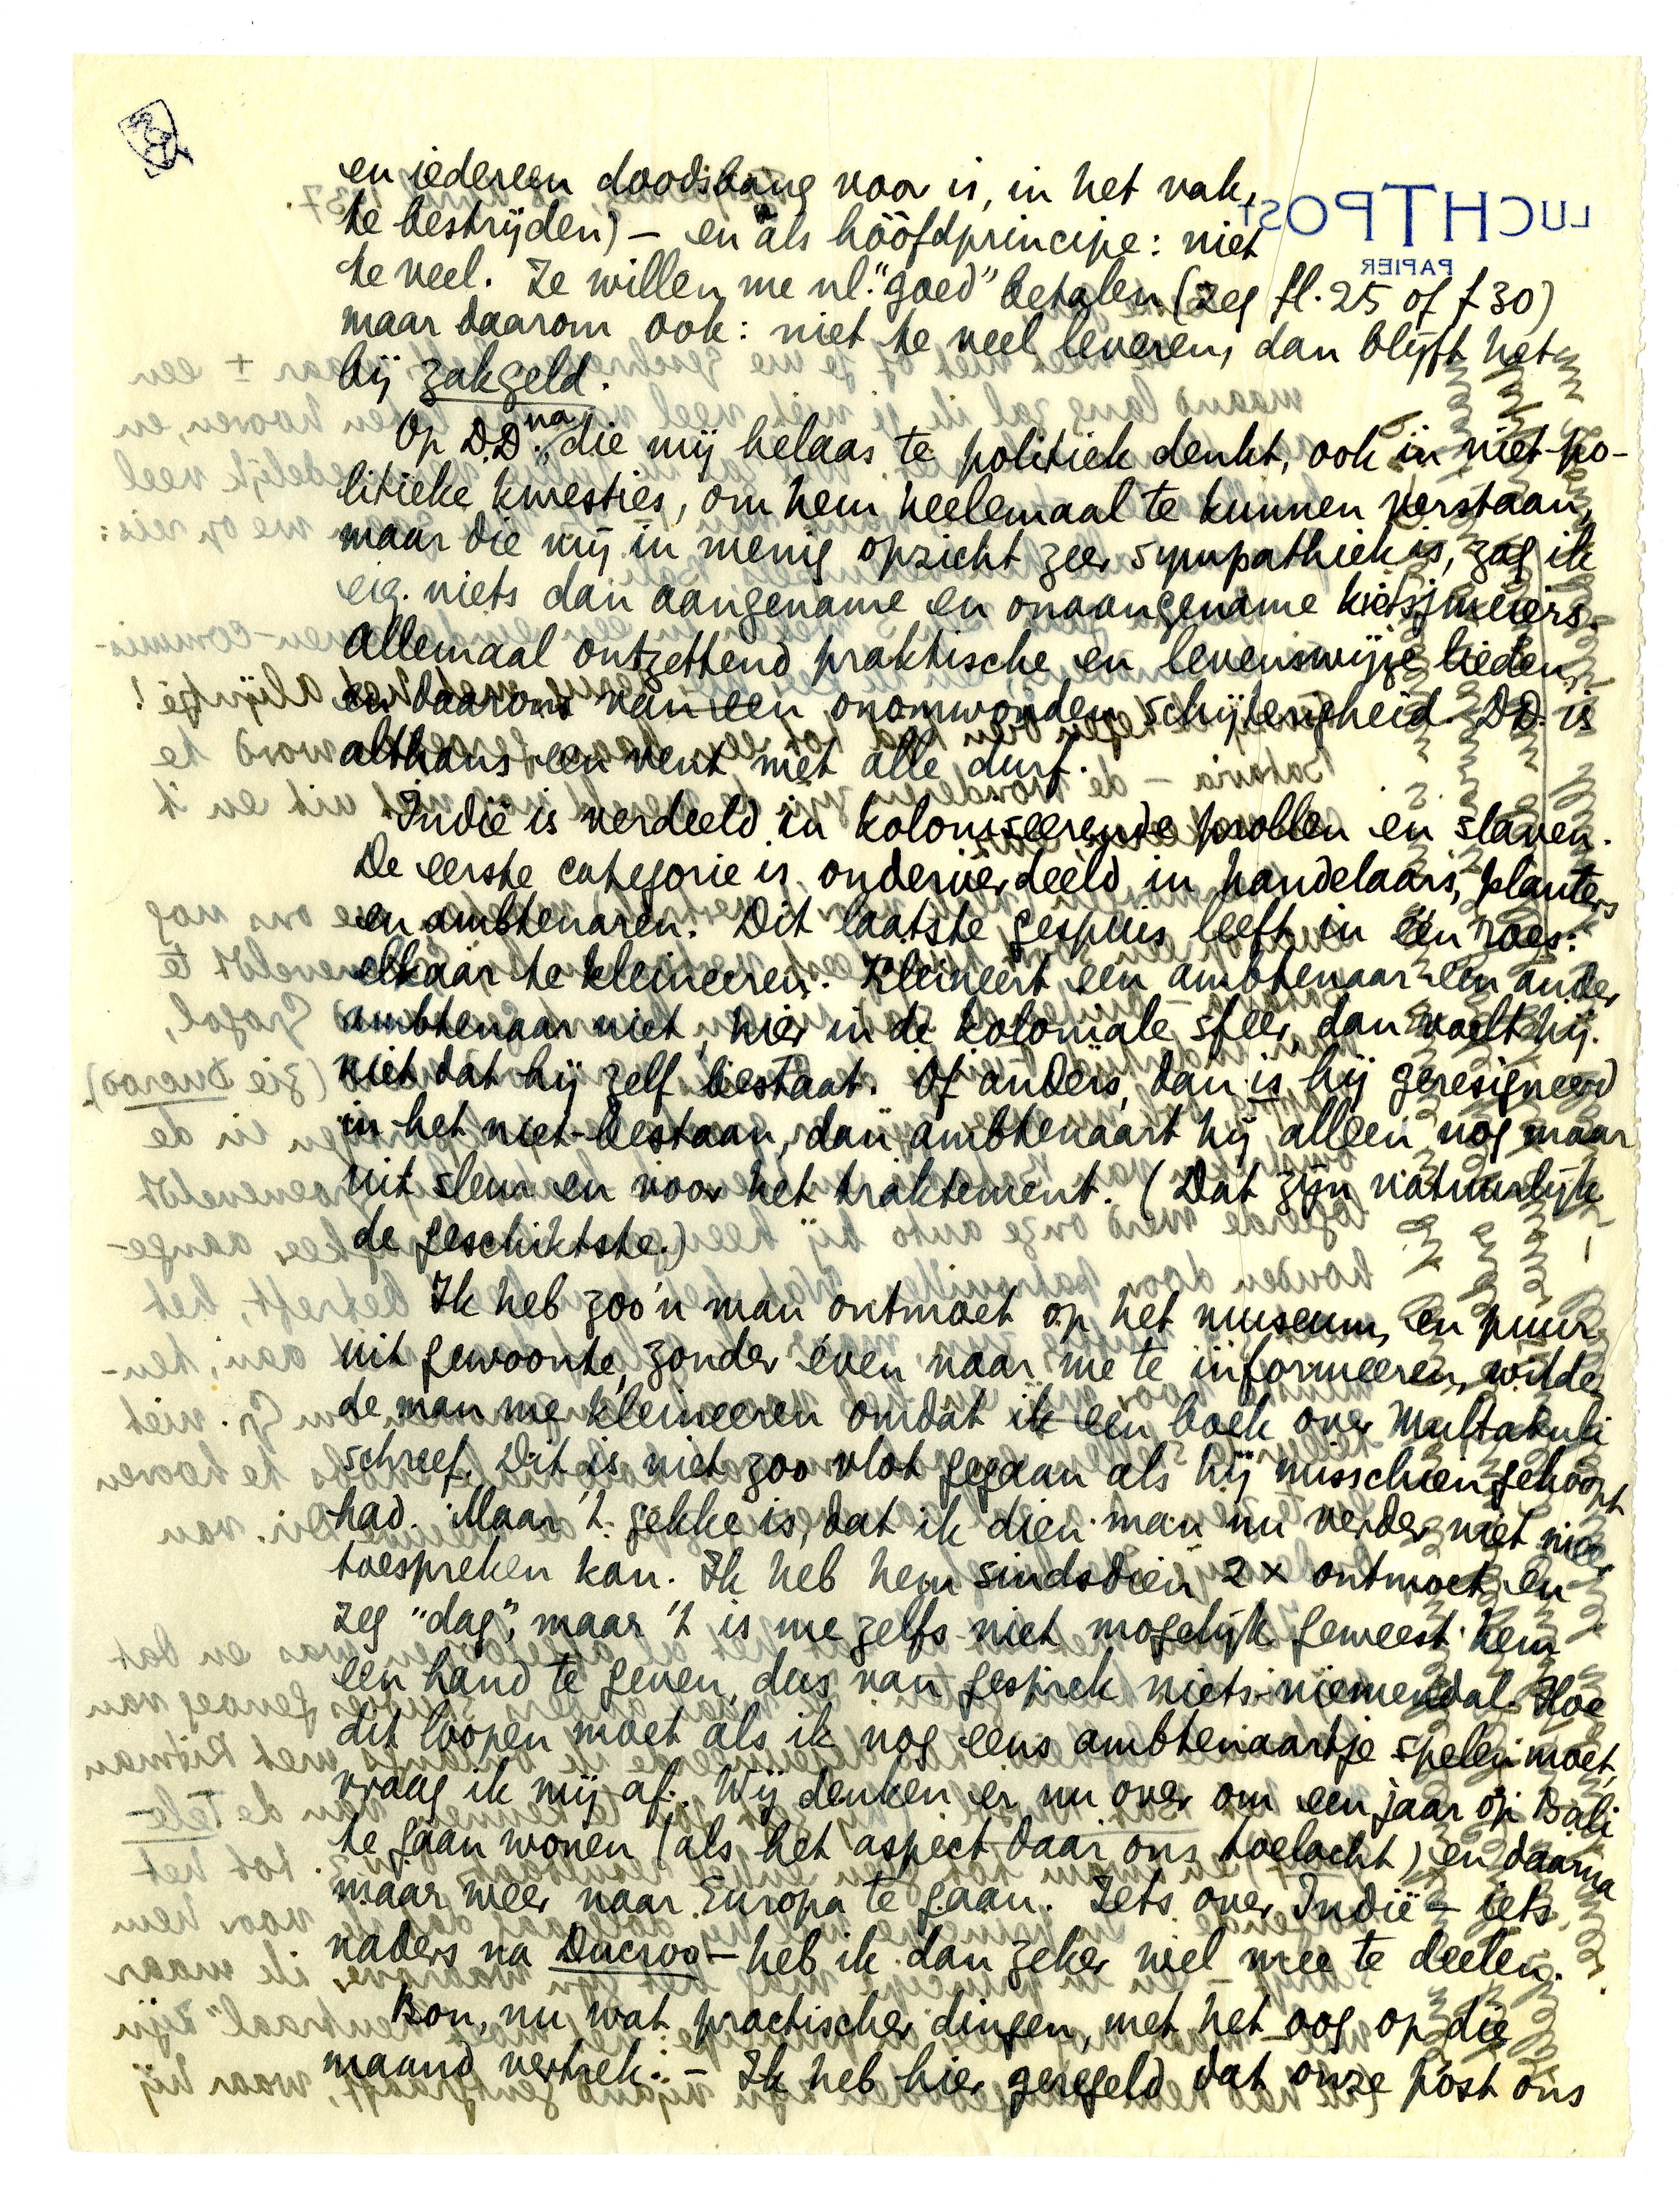 en iedereen doodsbang voor is, in het vak,
te bestrijden) – en als hóófdprincipe: niet
te veel. Ze willen me nl. "goed" betalen (zeg fl. 25 of f 30)
maar daarom ook: niet te veel leveren, dan blijft het
bij zakgeld.
Op D.D. na, die mij helaas te politiek denkt, ook in niet-po-
litieke kwesties, om hem heelemaal te kunnen verstaan,
maar die mij in menig opzicht zeer sympathiek is, zag ik
eig. niets dan aangename en onaangename kietsjmeiers.
Allemaal ontzettend praktische en levenswijze lieden,
en daarom van een onomwonden schijterigheid. D.D. is
althans een vent met alle durf.
Indië is verdeeld in koloniseerende prollen en slaven.
De eerste categorie is onderverdeeld in handelaars, planters
en ambtenaren. Dit laatste gespuis leeft in één roes:
elkaar te kleineeren. Kleineert een ambtenaar een ander
ambtenaar niet, hier in de koloniale sfeer, dan voelt hij
niet dat hij zelf bestaat. Of anders, dan is hij geresigneerd
in het niet-bestaan, dan ambtenaart hij alleen nog maar
uit sleur en voor het traktement. (Dat zijn natuurlijk
de geschiktste.)
Ik heb zoo'n man ontmoet op het museum, en puur
uit gewoonte, zonder even naar me te informeeren, wilde
de man me kleineeren omdat ik een boek over Multatuli
schreef. Dit is niet zoo vlot gegaan als hij misschien gehoopt
had. Maar 't gekke is, dat ik dien man nu verder niet meer
toespreken kan. Ik heb hem sindsdien 2 x ontmoet en
zeg "dag", maar 't is me zelfs niet mogelijk geweest hem
een hand te geven, dus van gesprek niets-niemendal. Hoe
dit loopen moet als ik nog eens ambtenaartje spelen moet,
vraag ik mij af. Wij denken er nu over om een jaar op Bali
te gaan wonen (als het aspect daar ons toelacht) en daarna
maar weer naar Europa te gaan. Iets over Indië – iets
naders na Ducroo – heb ik dan zeker wel mee te deelen.
Bon, nu wat practischer dingen, met het oog op die
maand vertrek: – Ik heb hier geregeld dat onze post ons
LUCHTPOST
PAPIER